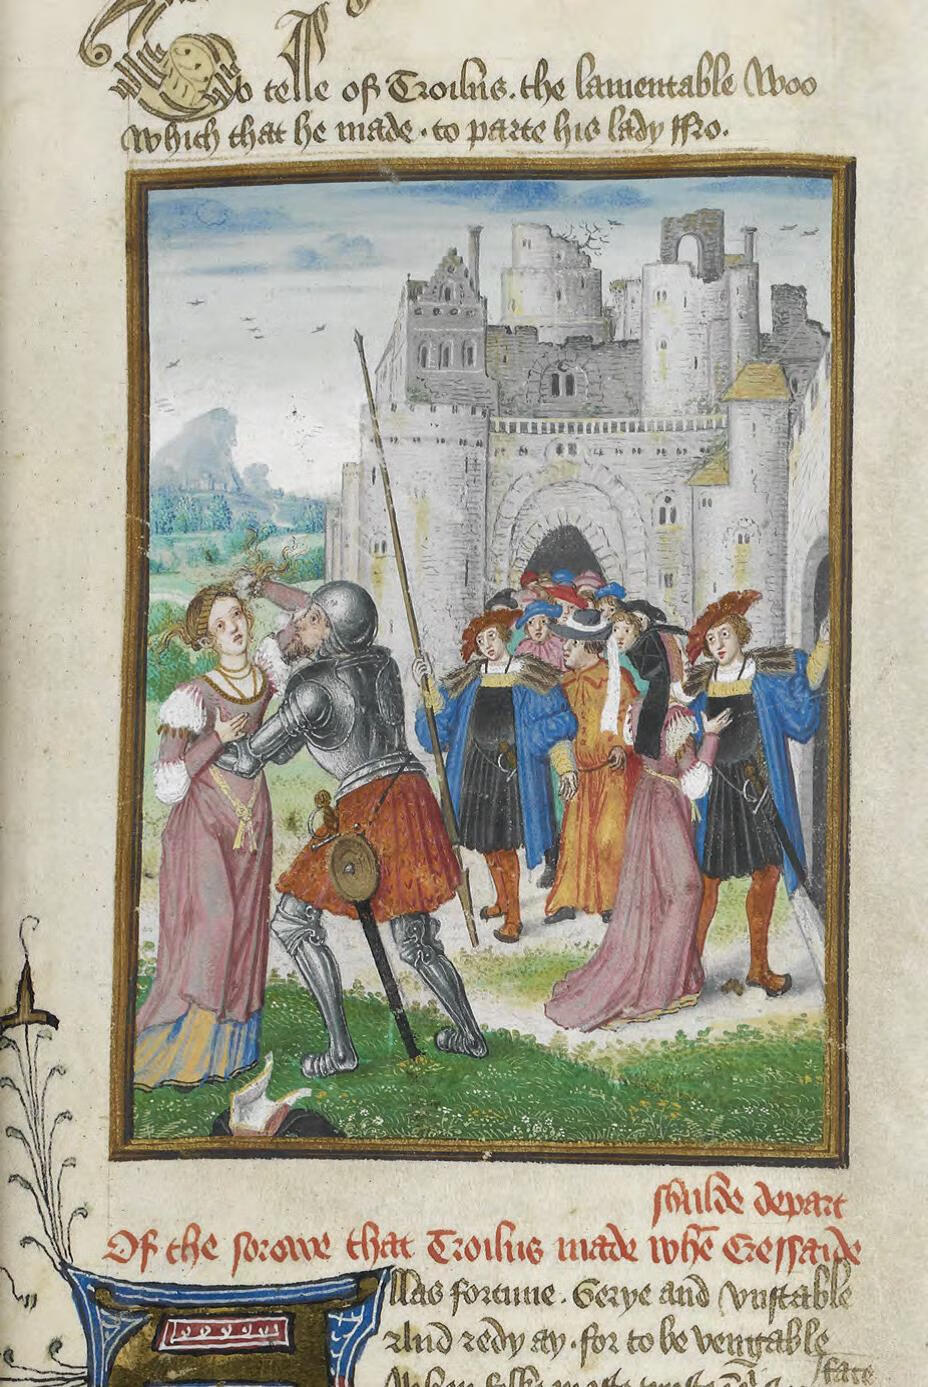 To telle of Troilus. the lamentable Woo
Which that he made. to parte his lady ffro.
shulde depart
Of the sorowe that Troilus made whē Cressaide
llas fortune. Gerye and vnstable
And redy ay. for to be
Whan folke moste